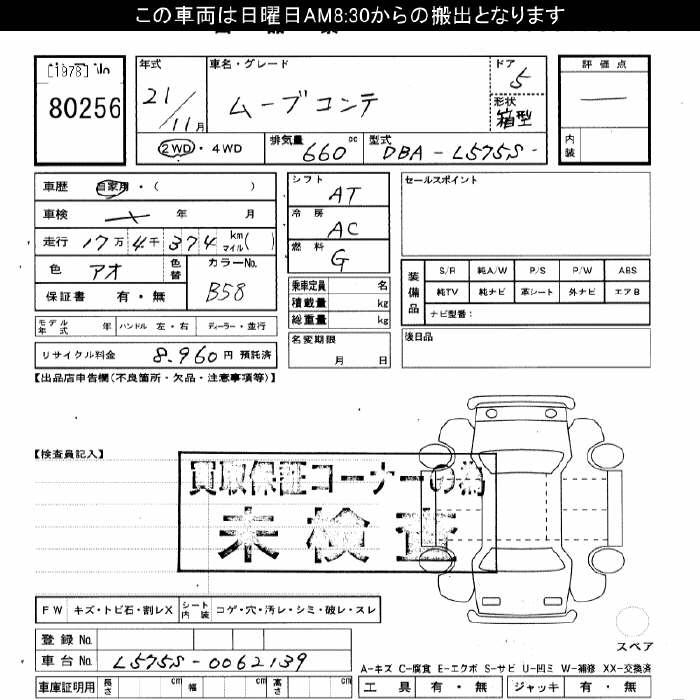 この車両は日曜日AM8:30からの搬出となります
[1978] No
80256
年式 車名・グレード ドア 評価点
21/11月 ムーブコンテ 5
形状 箱型
2WD・4WD 排気量 660 cc 型式 DBA-L575S-
内装
車歴 自家用・( )
車検 年 月
走行 17万 4千 374 km マイル( )
色 アオ 色替 カラーNo. B58
保証書 有・無
モデル年式 年 ハンドル 左・右 ディーラー・並行
リサイクル料金 8,960 円 預託済
シフト AT
冷房 AC
燃料 G
乗車定員 名
積載量 kg
総重量 kg
名変期限 月 日
セールスポイント
装備品 S/R 純A/W P/S P/W ABS
純TV 純ナビ 革シート 外ナビ エアB
ナビ型番:
後日品
【出品店申告欄(不良箇所・欠品・注意事項等)】
【検査員記入】
買取保証コーナーの為
未検査
FW キズ・トビ石・割レX シート内装 コゲ・穴・汚レ・シミ・破レ・スレ
スペア
登録No.
車台No. L575S-0062139
A-キズ C-腐食 E-エクボ S-サビ U-凹ミ W-補修 XX-交換済
車庫証明用 長さ cm 幅 cm 高さ cm 工具 有・無 ジャッキ 有・無